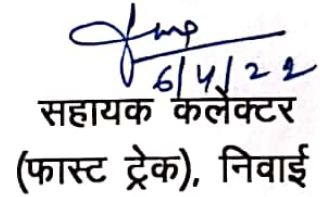 6/4/22
सहायक कलेक्टर
(फास्ट ट्रेक), निवाई